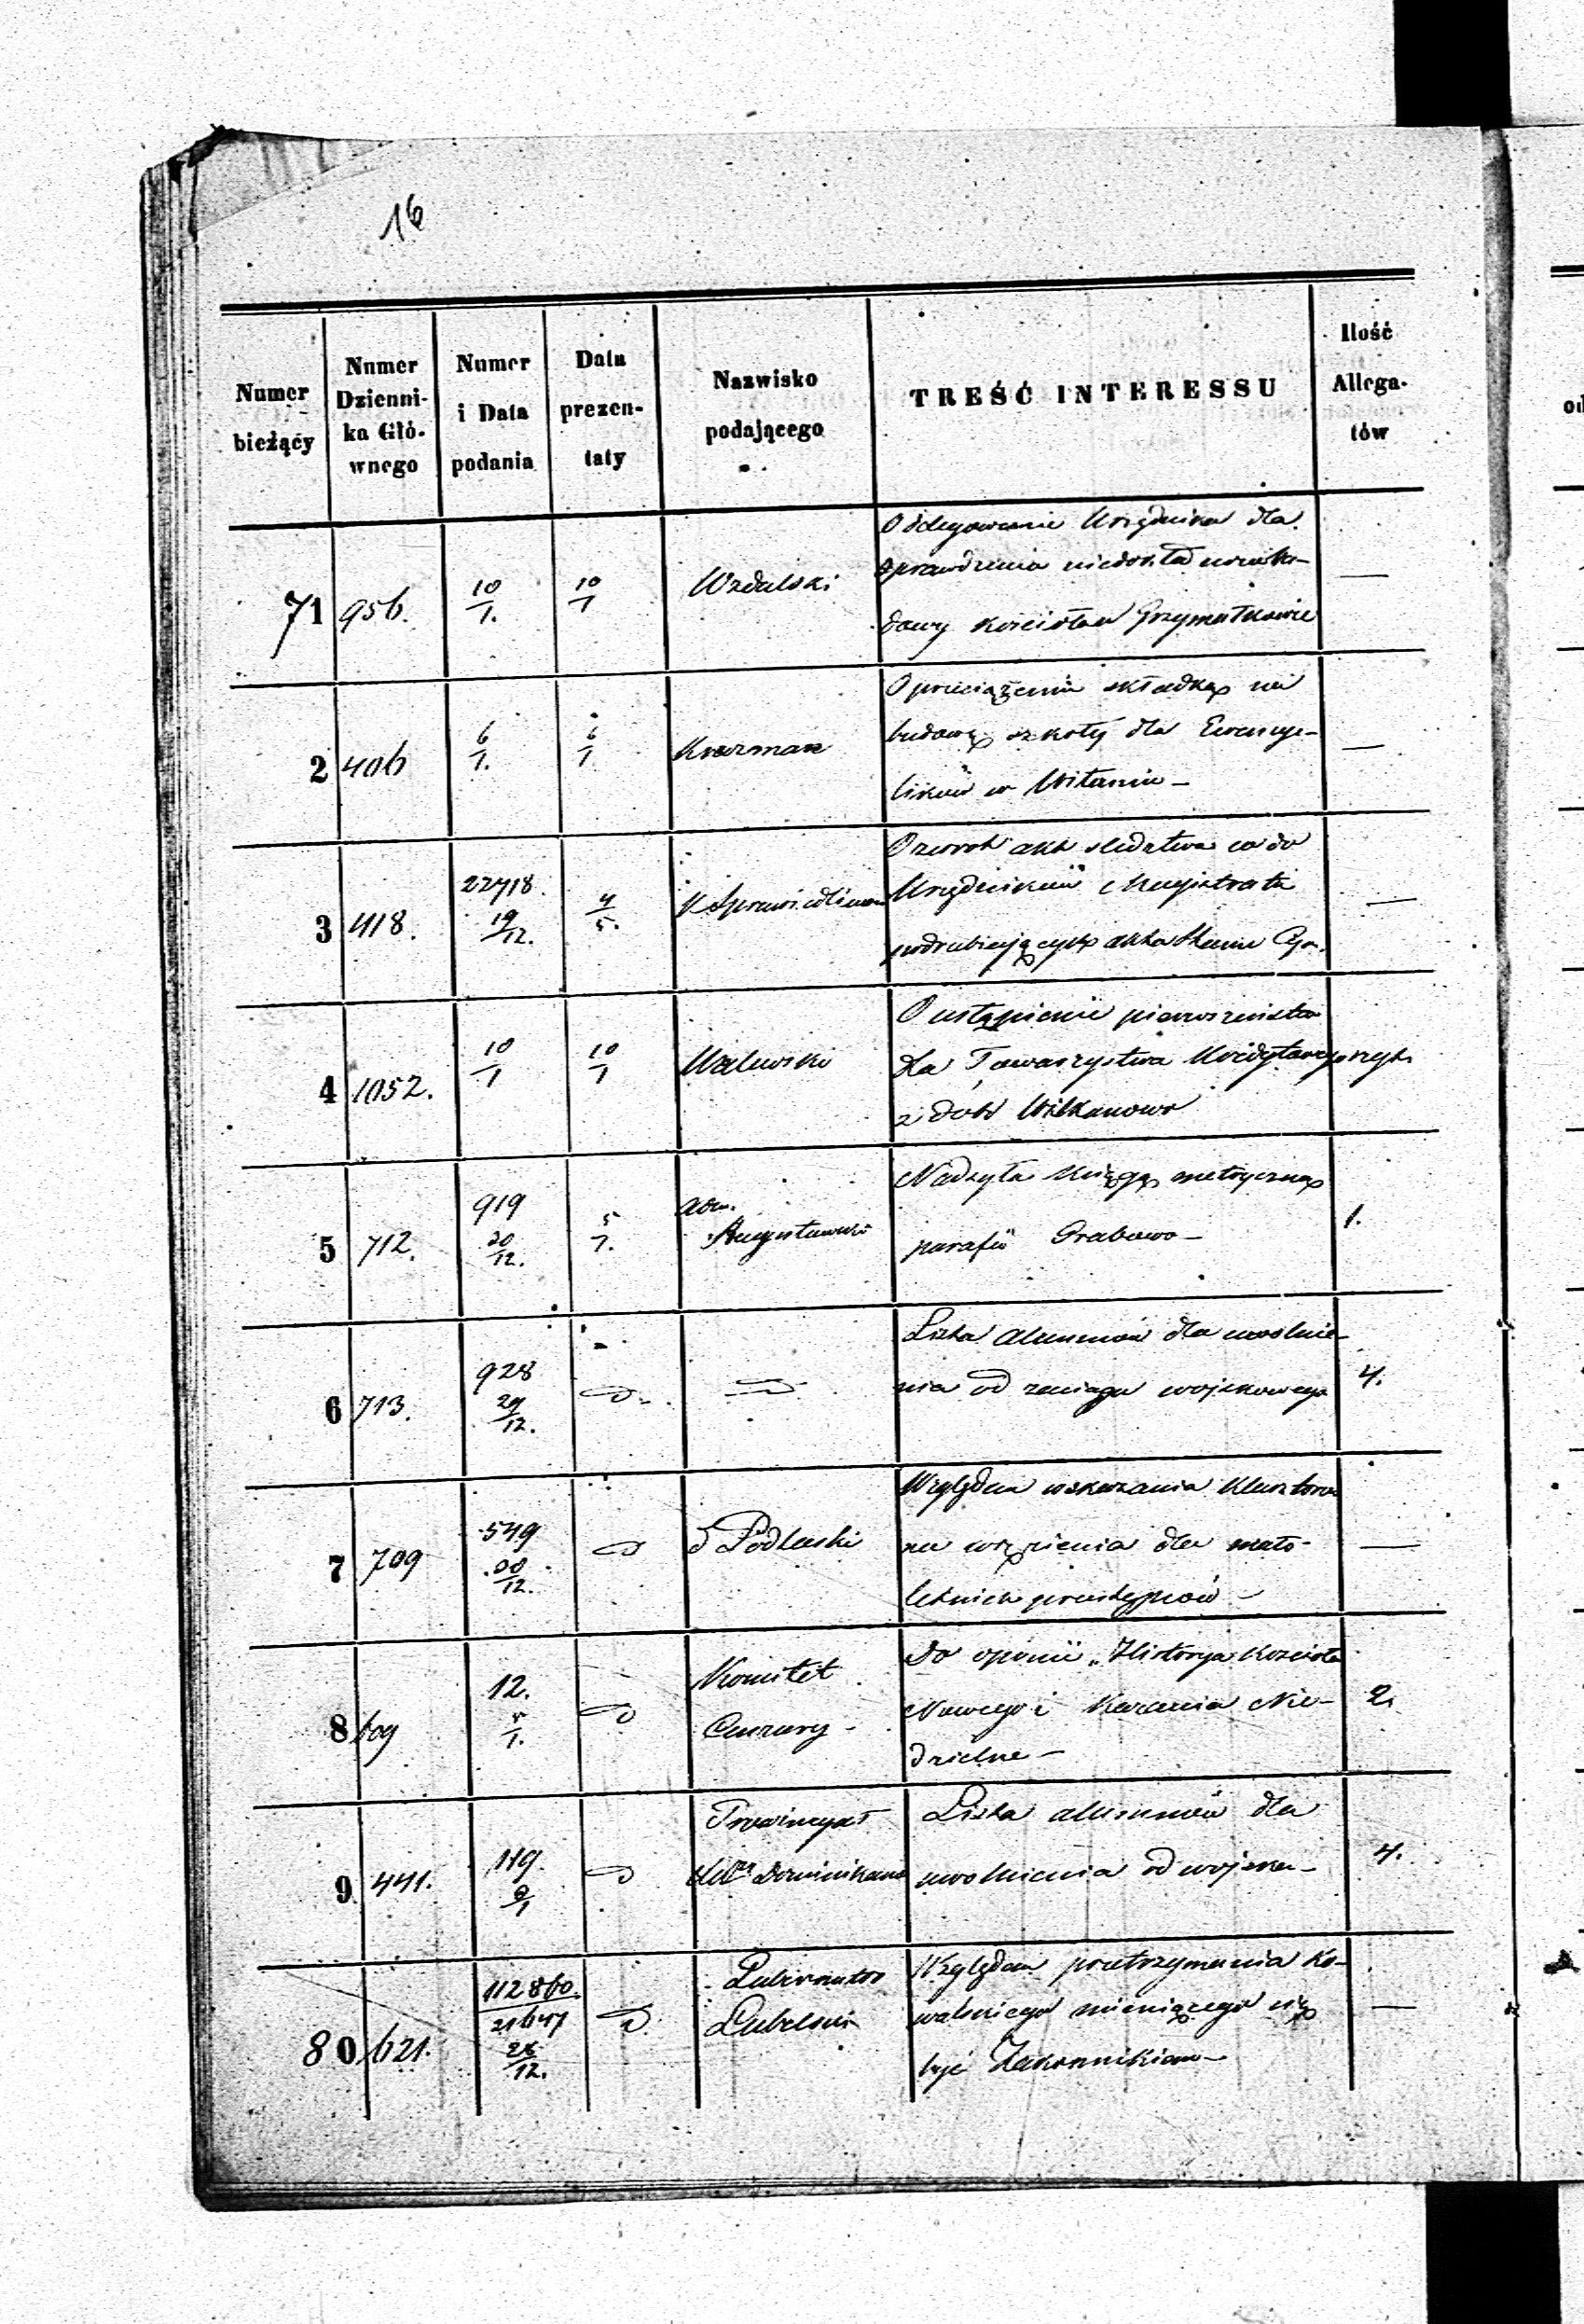 16
Numer bieżący
Numer Dzienni- ka Głó- wnego
Numer i Data podania
Data prezen- taty
Nazwisko podającego
TREŚĆ INTERESSU
Ilość Allega- tów
71 956. 10/1. 10/1 Wzdulski
O delegowanie Urzędnika dla
sprawdzenia
—
2 406 6/1. 6/1
O składkę na
budowę szkoły dla Ewange-
lików w Witaniu —
—
3 418. 22718. 19/12. 4/5. K Sprawiedliwo
O zwrot akt śledztwa co do
Urzędników Magistratu
podrabiających akta Stanu Cyw.
—
4 1052. 10/1 10/1 Walewski
O ustąpienie pierwszeństwa
dla Towarzystwa Kredytowego
z dóbr Wilkanowo
5 712. 919 20/12. 5/1. adm. Augustowski
Nadsyła księgę metryczną
parafii Grabowo —
1.
6 713. 928 29/12.
Lista alumnów dla uwolnie-
nia od zaciągu wojskowego
4.
7 709 549 30/12. Podlaski
Względem wskazania klasztoru
na więzienia dla mało-
letnich przestępców —
—
8 609 12. 5/1. Komitet Cenzury —
Do opinii „Historya Kościoła
Nowego i Kazania Nie-
dzielne —
2.
9 441. 119. 2/1 Prowincyał Dominikanów
Lista alumnów dla
uwolnienia od wojska —
4.
80 621. 112860. 21647 28/12. Gubernator Lubelski
Względem przetrzymania Ko-
walskiego mieniącego się
być Zakonnikiem —
—